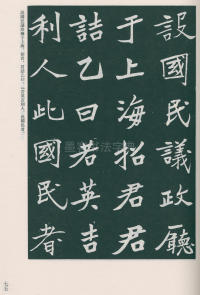 設國民議政廳
于上海招君君
詰乙曰若英吉
利人此國民者